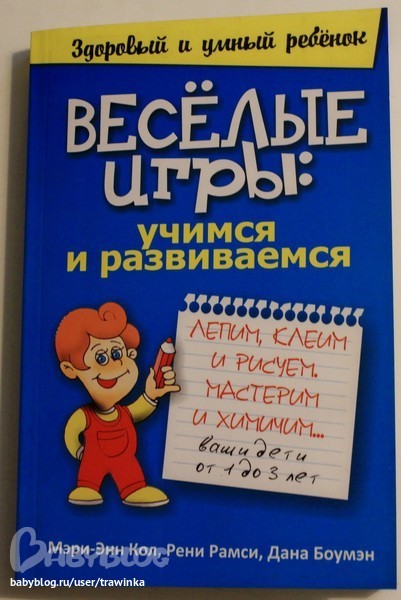 Здоровый и умный ребёнок
ВЕСЁЛЫЕ
ИГРЫ:
учимся
и развиваемся
ЛЕПИМ, КЛЕИМ
И РИСУЕМ.
МАСТЕРИМ
И ХИМИЧИМ...
ваши дети
от 1 до 3 лет
Мэри-Энн Кол, Рени Рамси, Дана Боумэн
BABYBLOG
babyblog.ru/user/trawinka